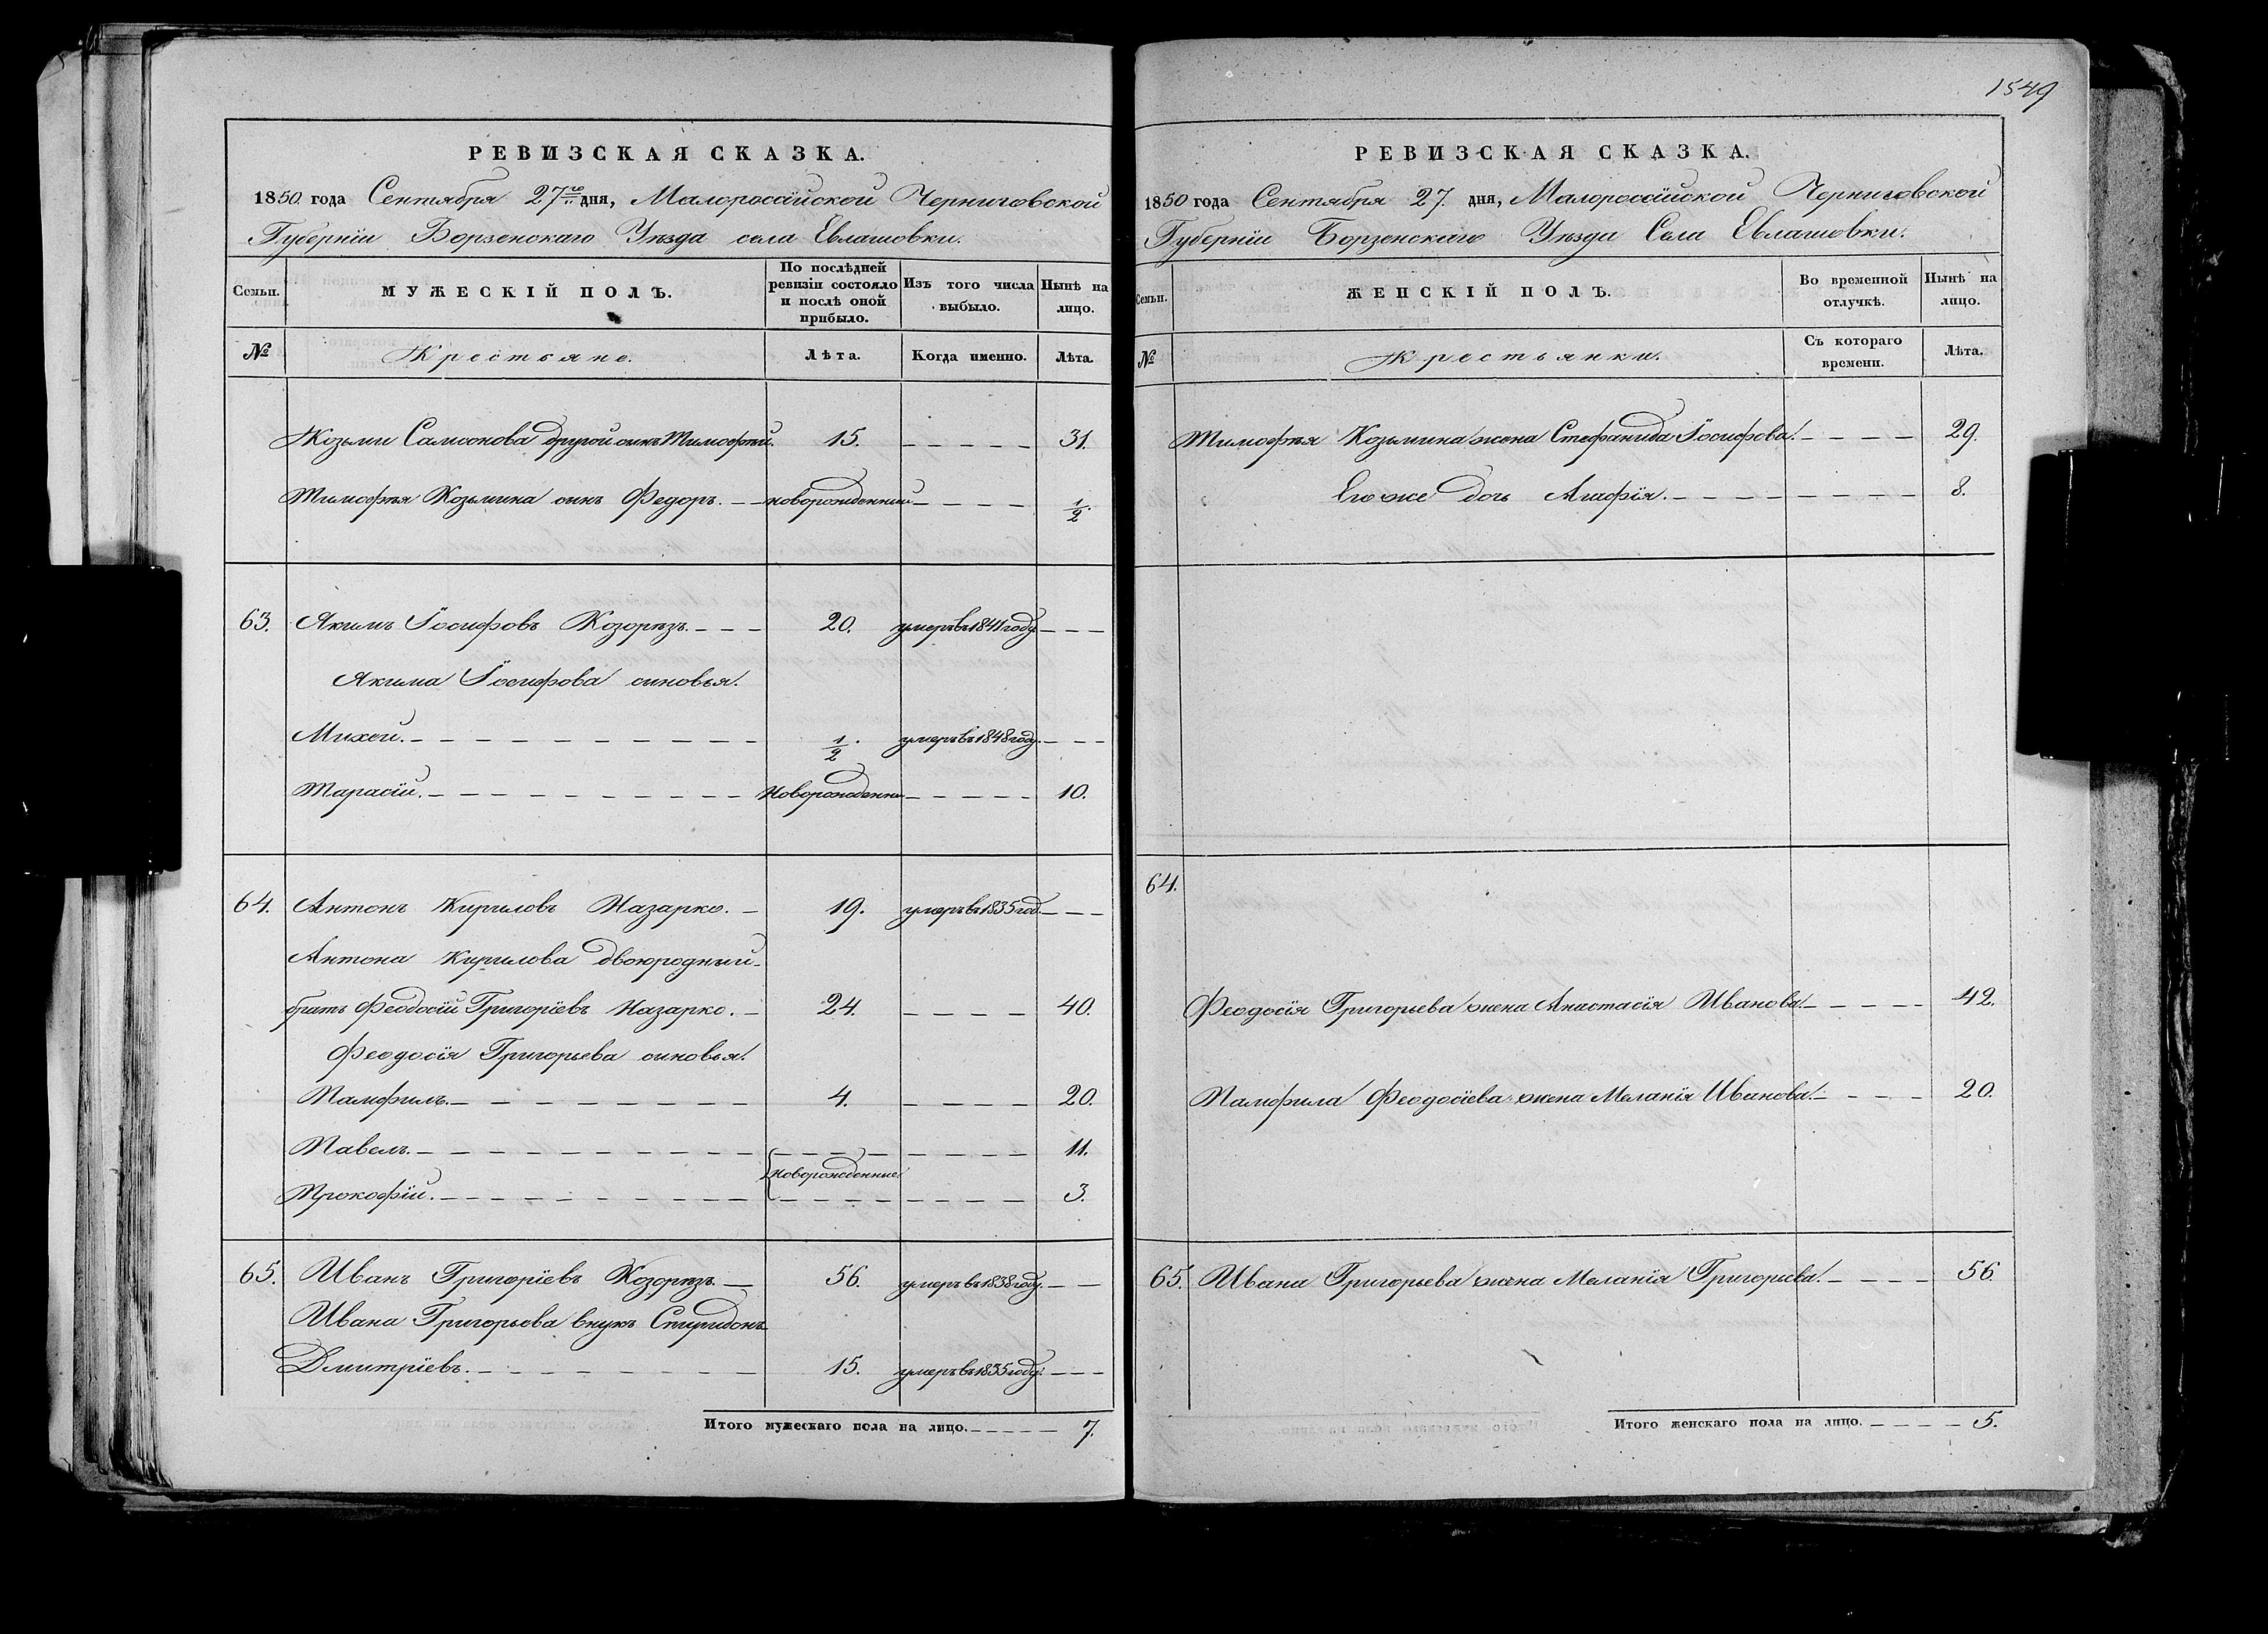 1549
РЕВИЗСКАЯ СКАЗКА.
1850 года Сентября 27го дня, Малороссійской Черниговской
Губерніи Борзенскаго Уѣзда села Евлашовки.
Семьи.
МУЖЕСКІЙ ПОЛЪ.
По послѣдней ревизіи состояло и послѣ оной прибыло.
Изъ того числа выбыло.
Нынѣ на лицо.
№
Крестьяне.
Лѣта.
Когда именно.
Лѣта.
Козьми Самсонова другой сынъ Тимофѣй. 15. 31.
Тимофѣя Козьмина сынъ Федоръ. новорожденный 1/2.
63. Якимъ Іосифовъ Козорѣзъ. 20. умеръ въ 1841 году
Якима Іосифова синовья.
Михей. 1/2. умеръ въ 1848 году.
Тарасій. Новорожденн 10.
64. Антонъ Кириловъ Назарко. 19. умеръ въ 1835 год.
Антона Кирилова двоюродный
братъ Феодосій Григоріевъ Назарко. 24. 40.
Феодосія Григорьева синовья.
Памфилъ. 4. 20.
Павелъ. 11.
Новорожденные
Прокофій. 3.
65. Иванъ Григоріевъ Козорѣзъ. 56. умеръ въ 1838 году.
Ивана Григорьева внукъ Спиридонъ
Дмитріевъ. 15. умеръ въ 1835 году.
Итого мужескаго пола на лицо. 7.
РЕВИЗСКАЯ СКАЗКА.
1850 года Сентября 27. дня, Малороссійской Черниговской
Губерніи Борзенскаго Уѣзда Села Евлашовки.
Семьи.
ЖЕНСКІЙ ПОЛЪ.
Во временной отлучкѣ.
Нынѣ на лицо.
№
Крестьянки.
Съ котораго времени.
Лѣта.
Тимофѣя Козьмина жена Стефанида Іосифова. 29.
Его же дочь Агафія. 8.
64.
Феодосія Григорьева жена Анастасія Иванова. 42.
Памфила Феодосіева жена Меланія Иванова. 20.
65. Ивана Григорьева жена Меланія Григорьева. 56
Итого женскаго пола на лицо. 5.